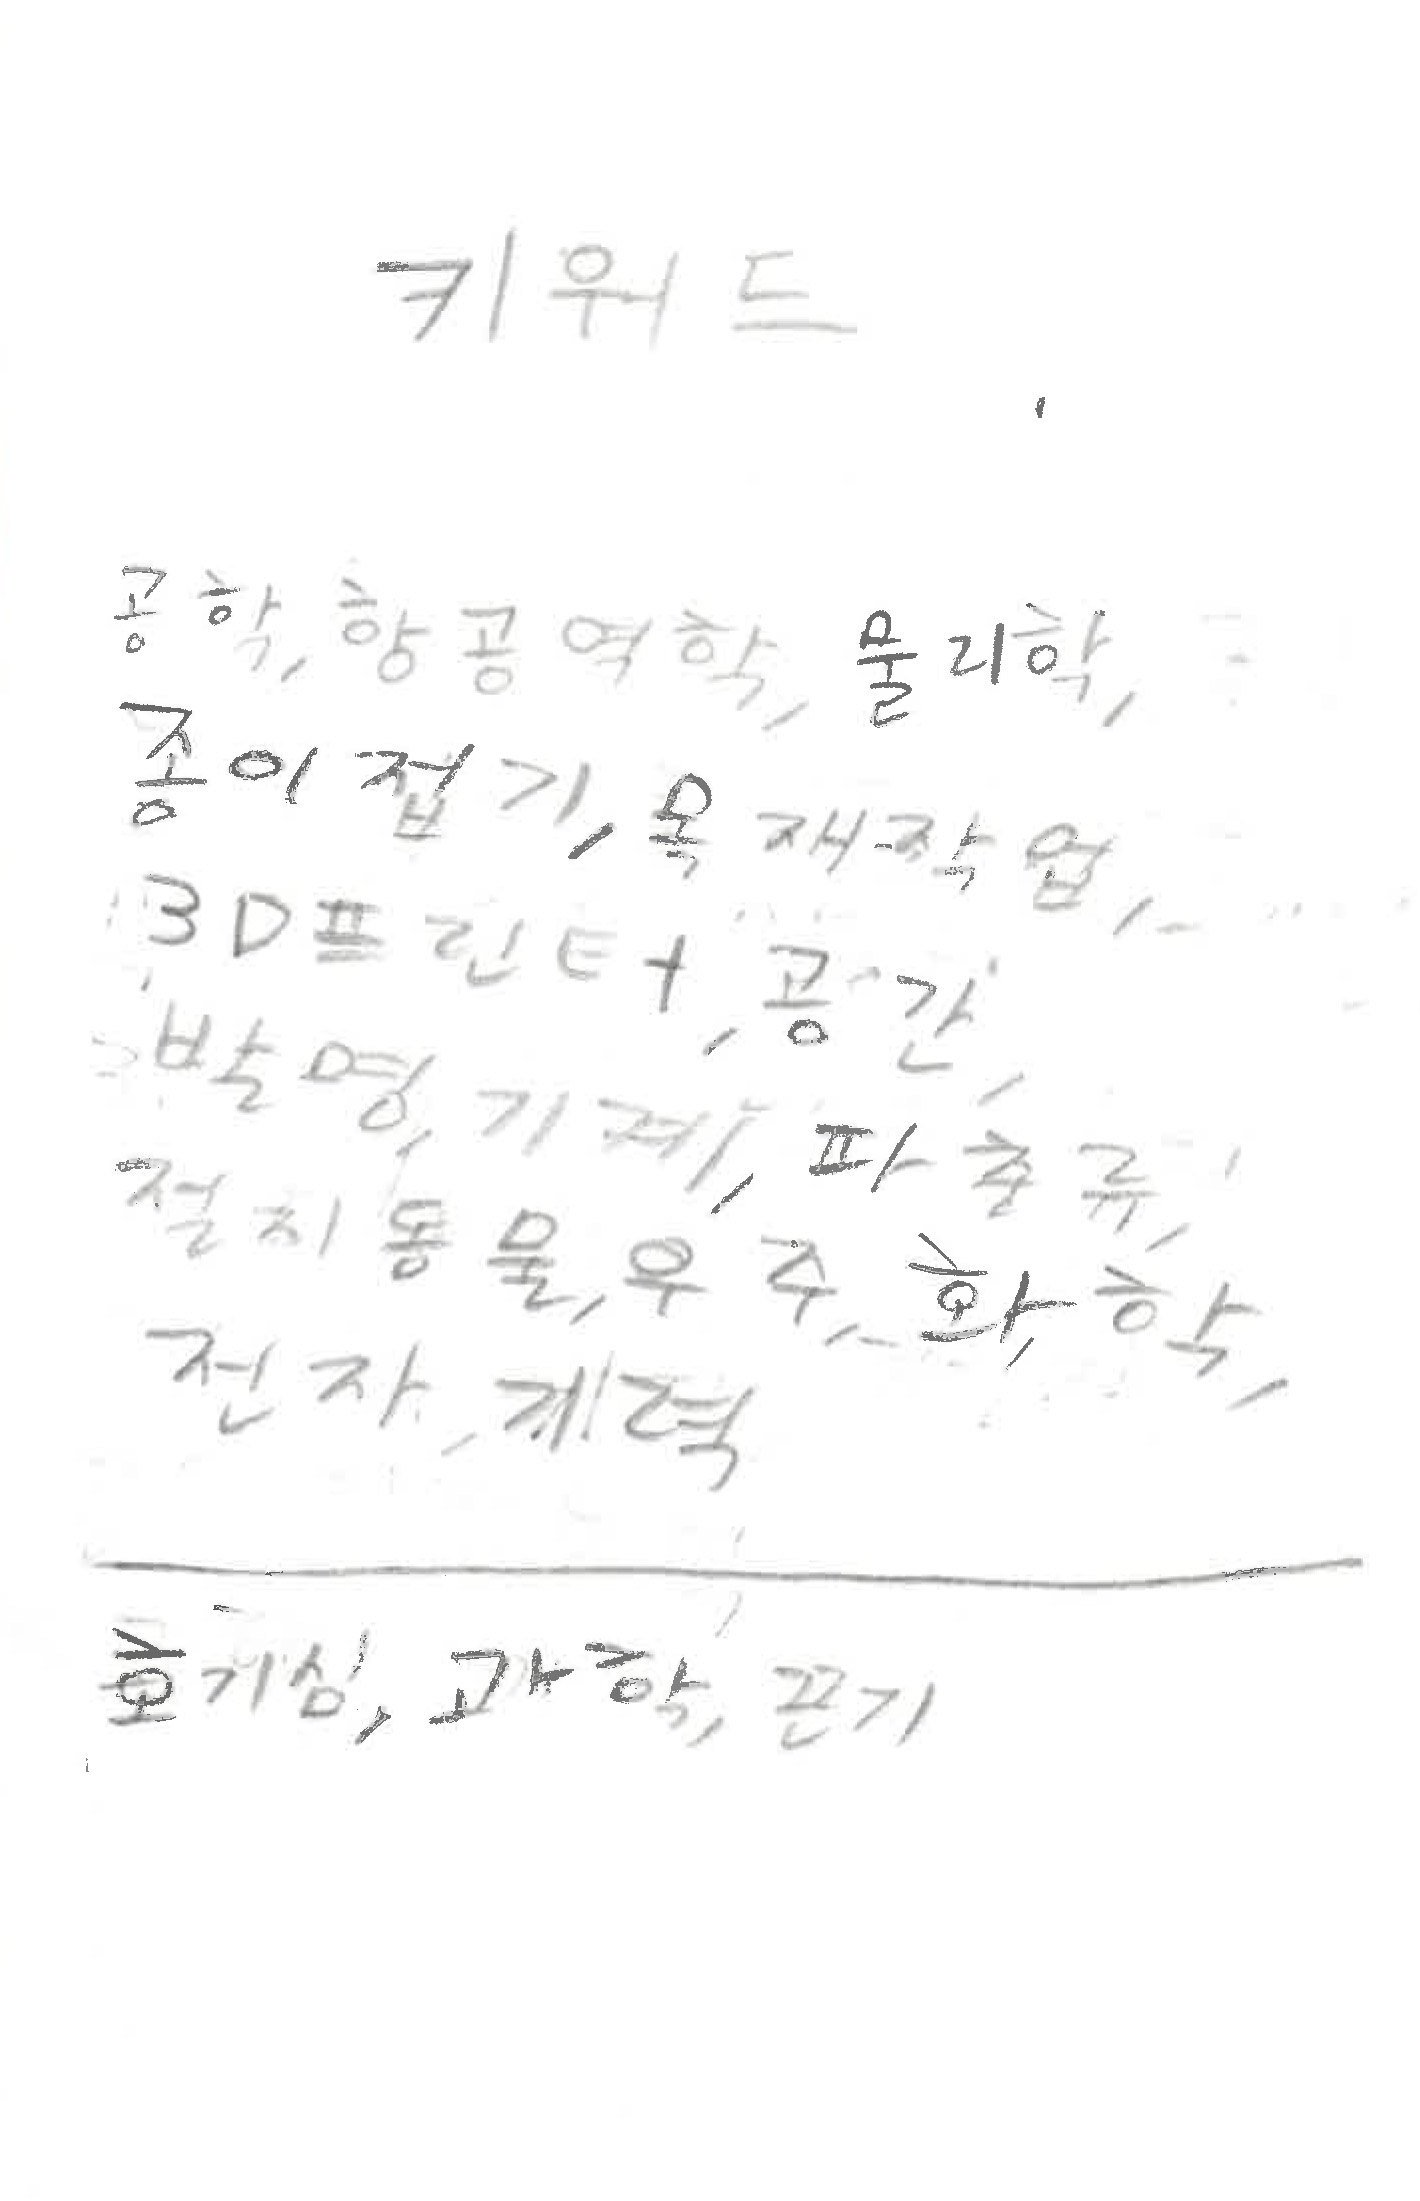 키워드
공학, 항공역학, 물리학,
종이접기, 목재작업,
3D프린터, 공간,
발명, 기계, 파충류,
절지동물, 우주, 화학,
전자, 계력
호기심, 과학, 끈기